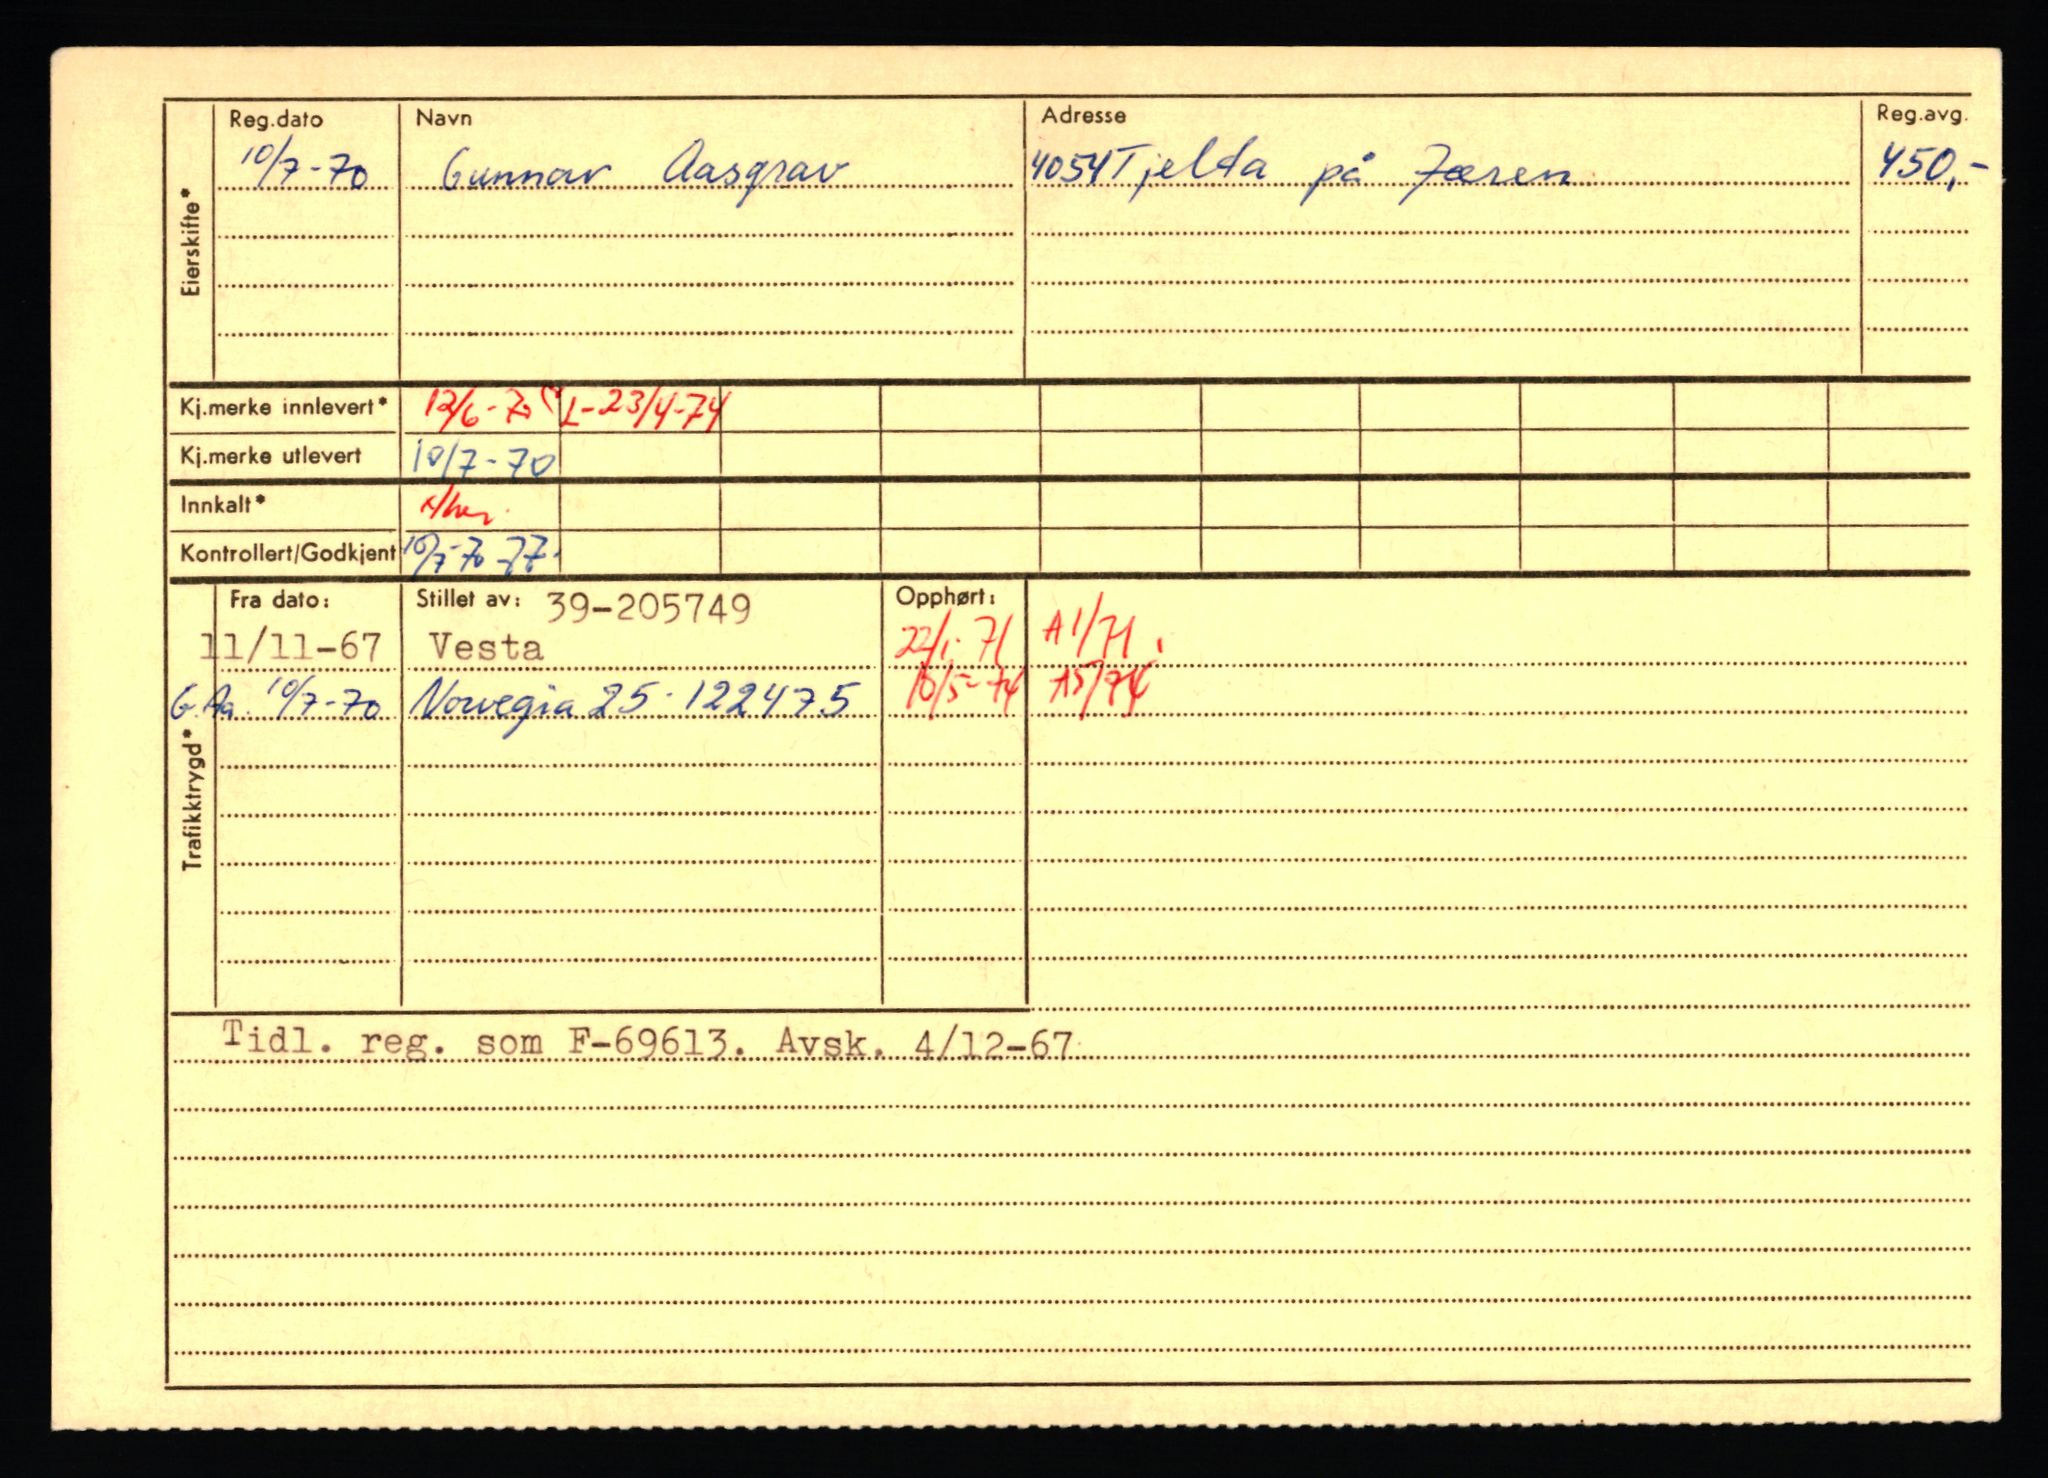 Reg.dato Navn Adresse Reg.avg.
10/7-70 Gunnar Aasgrav 4054 Tjelta på Jæren 450,-
Eierskifte*
Kj.merke innlevert* 12/6-70 L-23/4-74
Kj.merke utlevert 10/7-70
Innkalt*
Kontrollert/Godkjent 10/7-70
Fra dato: Stillet av: 39-205749 Opphørt:
11/11-67 Vesta 22/1-71 A1/71
G.Aa. 10/7-70 Norvegia 25-122475 10/5-74 A5/74
Trafikktrygd*
Tidl. reg. som F-69613. Avsk. 4/12-67